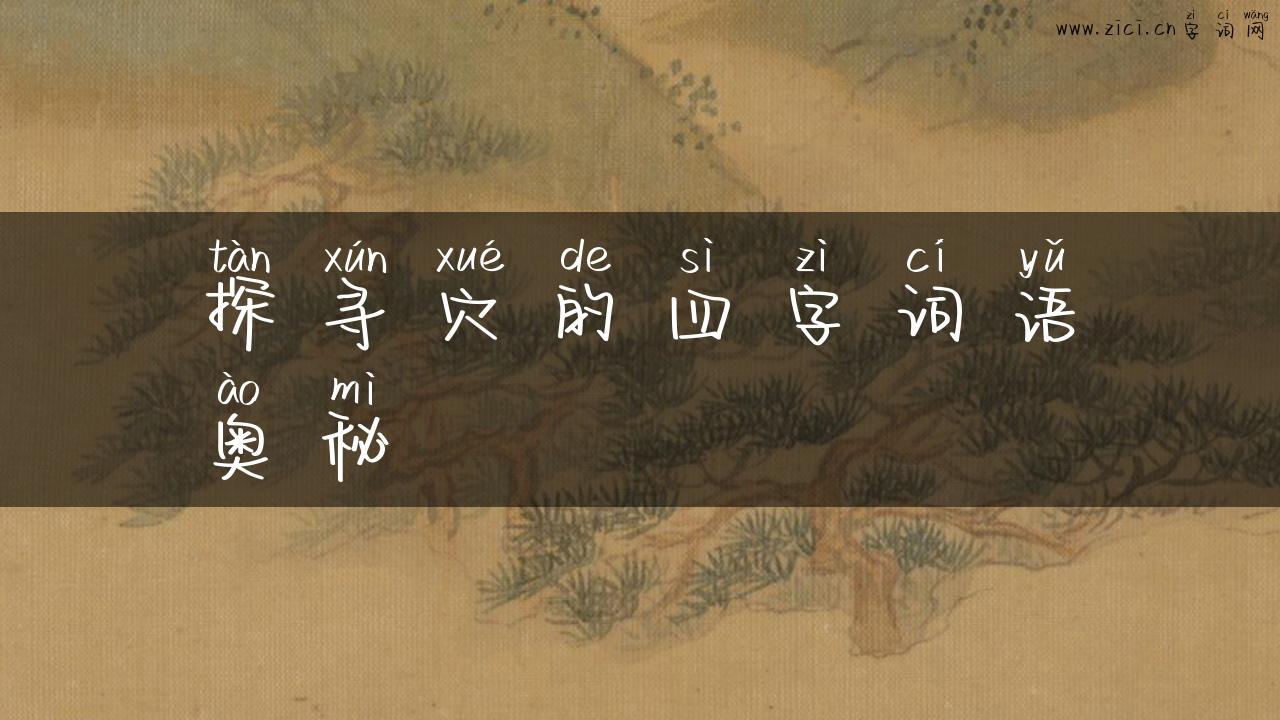 zì cí wǎng
www.zici.cn 字词网
tàn xún xué de sì zì cí yǔ
探寻穴的四字词语
ào mì
奥秘